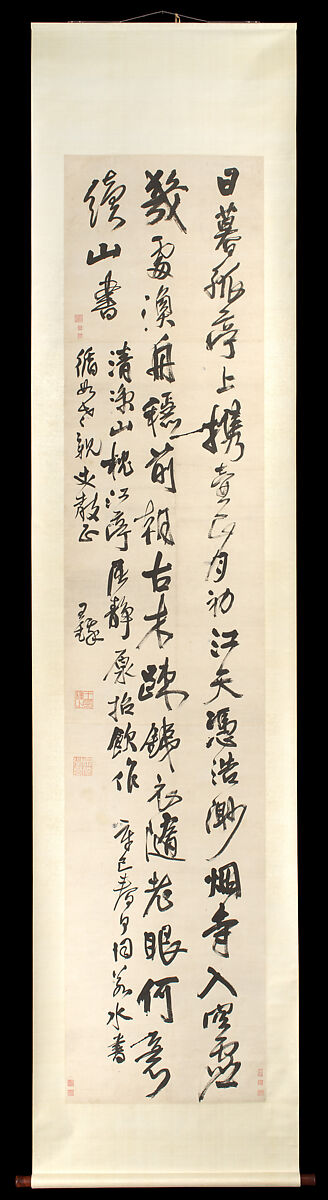 日暮孤亭上携壺正月初江天憑浩渺烟寺入空虛
幾處漁舟穩前朝古木疎鐵衣隨老眼何意
續山書
清涼山枕江亭屈靜原招飲作 辛巳春夕同若水書
循如老親丈教正 王鐸